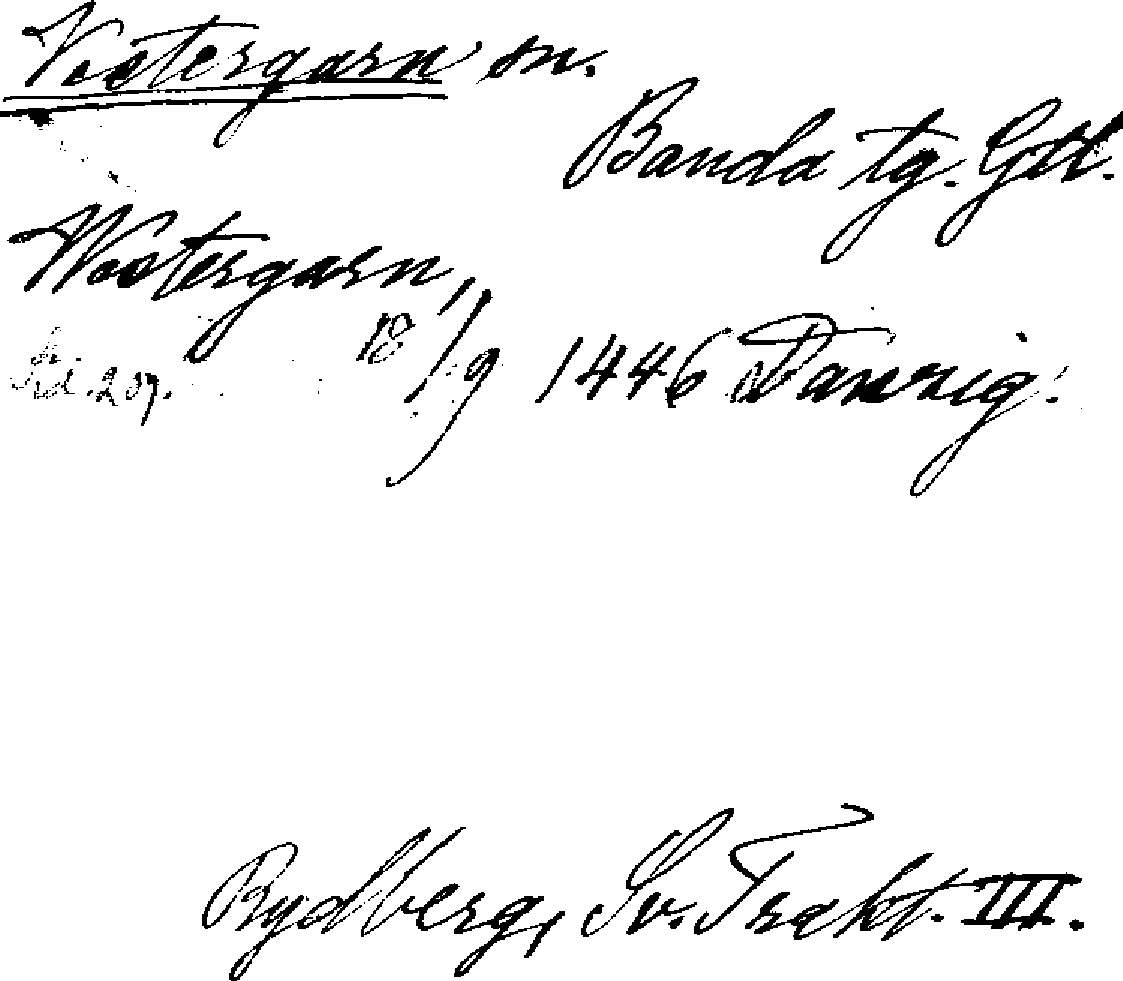 Västergarn sn.
Banda tg. Gtl.
Westergarn,
18/9 1446 Danzig.
Sid. 207.
Rydberg, Sv. Trakt. III.